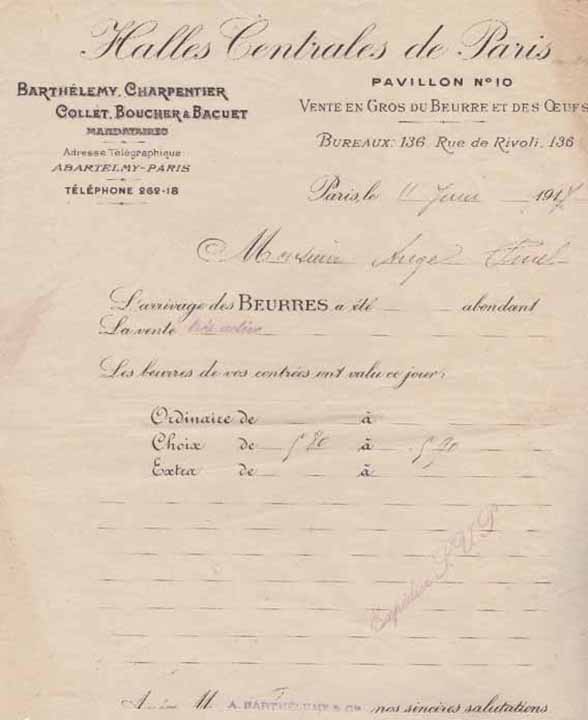 Halles Centrales de Paris
BARTHÉLEMY, CHARPENTIER
COLLET, BOUCHER & BACUET
MANDATAIRES
Adresse Télégraphique:
ABARTELMY-PARIS
TÉLÉPHONE 262-18
PAVILLON Nº 10
VENTE EN GROS DU BEURRE ET DES ŒUFS
BUREAUX: 136, Rue de Rivoli, 136
Paris, le 11 Juin 191
Monsieur Ange
L'arrivage des BEURRES a été abondant
La vente très active
Les beurres de vos contrées ont valu ce jour:
Ordinaire de à
Choix de 5 80 à 5 90
Extra de à
Expédiez S.V.P
M A. BARTHÉLEMY & Cie nos sincères salutations